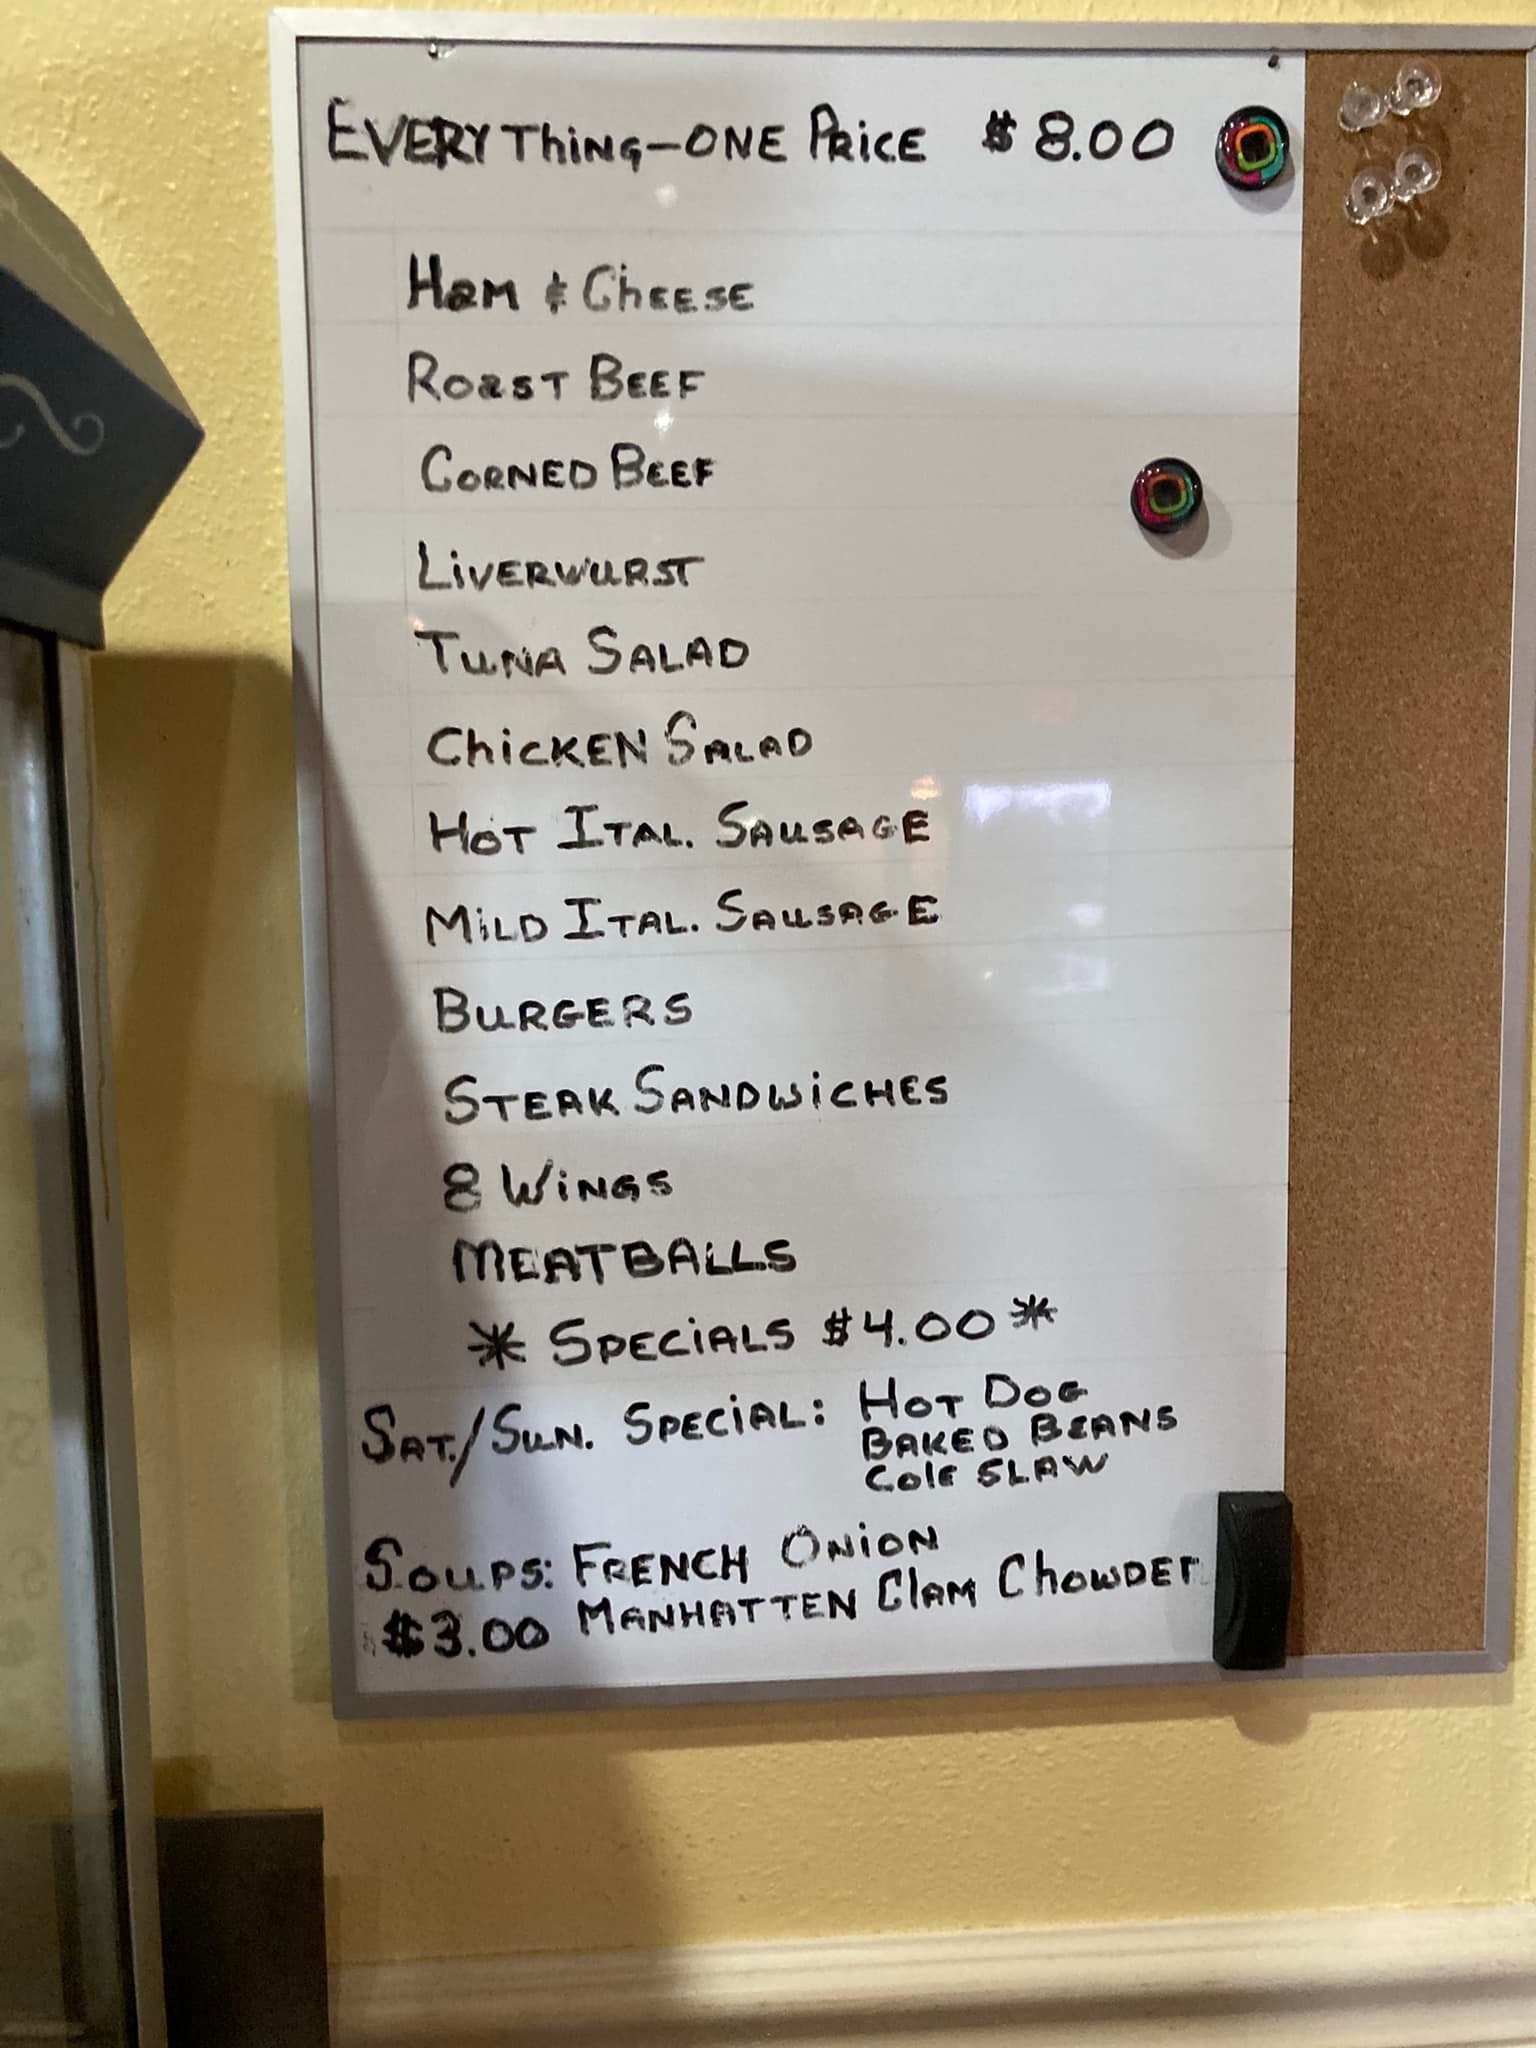 EVERYThiNG-ONE PRiCE $8.00
HaM & ChEESE
ROaST BEEF
CORNED BEEF
LiVERWURST
TUNA SALAD
ChiCKEN SALAD
HOT ITAL. SAUSAGE
MiLD ITAL. SAUSAGE
BURGERS
STEAK SANDWiCHES
8 WiNGS
MEATBALLS
* SPECiALS $4.00 *
SAT./SUN. SPECiAL: HOT DOG
BAKED BEANS
COlE SLAW
SOUPS: FRENCH ONiON
$3.00 MANHATTEN ClAM ChOWDER